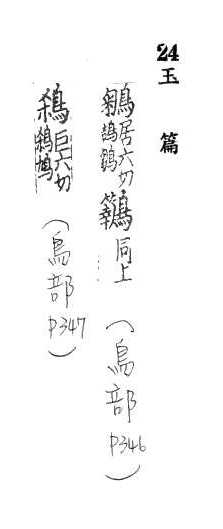 24 玉篇
鵴居六切鴶鵴 同上 (鳥部 P346)
巨六切 鳩 (鳥部 P347)